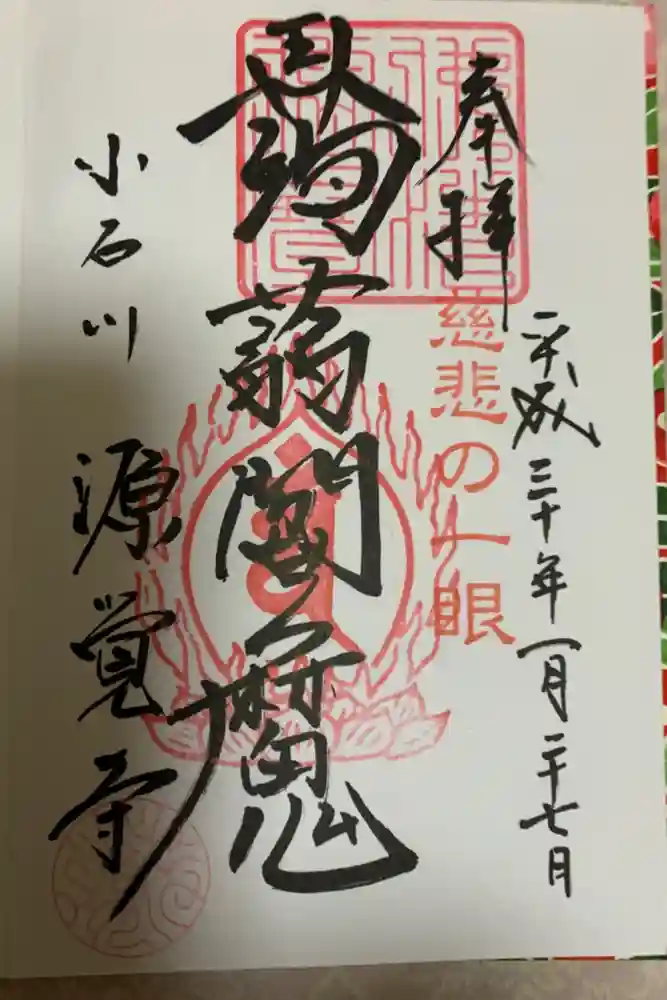 奉拝
平成三十年一月二十七日
慈悲の一眼
蒟蒻閻魔
小石川 源覚寺